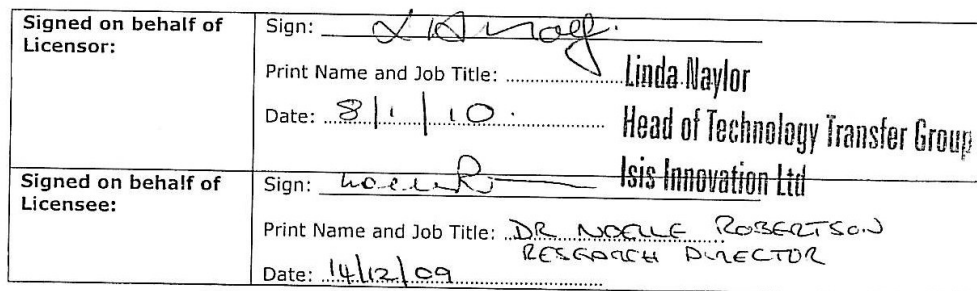 Signed on behalf of Licensor:
Sign:
Print Name and Job Title: Linda Naylor
Date: 8/1/10. Head of Technology Transfer Group
Isis Innovation Ltd
Signed on behalf of Licensee:
Sign:
Print Name and Job Title: DR NOELLE ROBERTSON
RESEARCH DIRECTOR
Date: 14/12/09